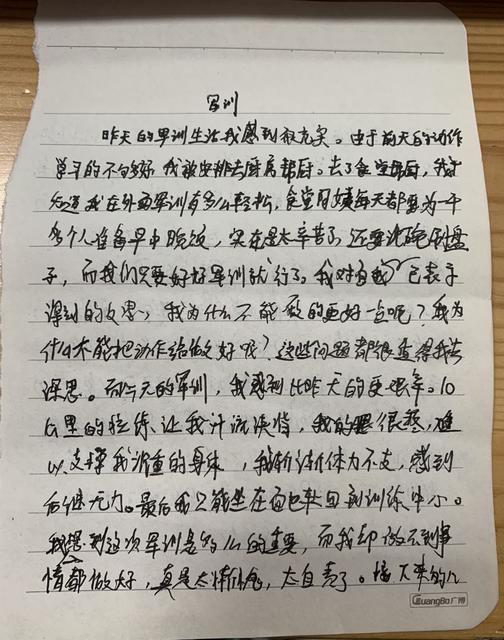 军训
昨天的军训生活我感到很充实。由于前天的动作
学习的不够好，我被安排去厨房帮厨。去了食堂帮厨，我才
知道我在外面军训有多么轻松，食堂阿姨每天都要为一千
多个人准备早中晚饭，实在是太辛苦了，还要洗碗刷盘
子，而我们只要好好军训就行了。我对自我已表示
深刻的反思，我为什么不能做的更好一点呢？我为
什么不能把动作给做好呢？这些问题都很值得我去
深思。而今天的军训，我感到比昨天的更艰辛。10
公里的拉练让我汗流浃背，我的腿很疼，难
以支撑我沉重的身体，我渐渐体力不支，感到
后继无力。最后我只能坐在面包车回到训练中心。
我想到这次军训是多么的重要，而我却做不到事
情都做好，真是太惭愧，太自责了。接下来的几
GuangBo 广博